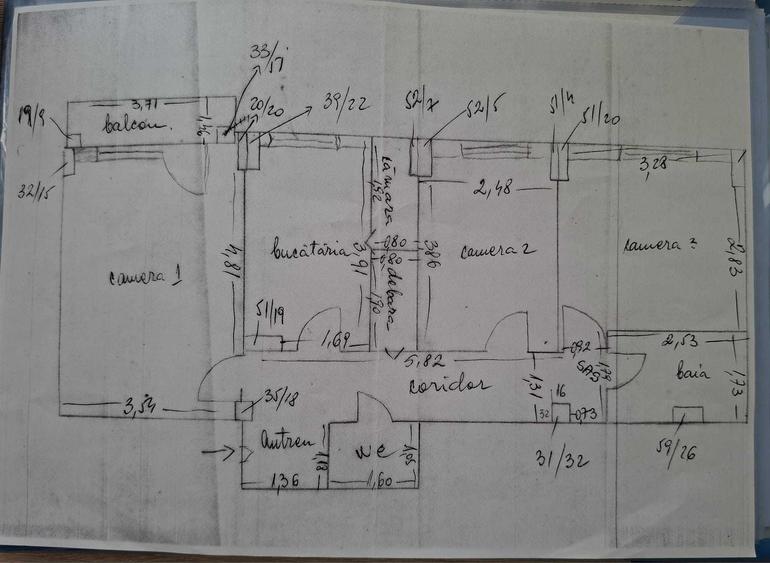 33/51
3,71
20/20
39/22
52/x
52/5
51/20
19/9
balcon.
1,46
32/15
cămara
1,92
2,48
3,28
camera 1
4,81
bucătăria
3,91
0,80
debara
1,90
3,86
camera 2
camera 3
2,83
51/19
1,69
5,82
0,92
2,53
coridor
1,31
SAS
1,79
baia
1,73
3,54
35/18
16
32
0,73
31/32
59/26
antreu
wc
1,05
1,36
1,60